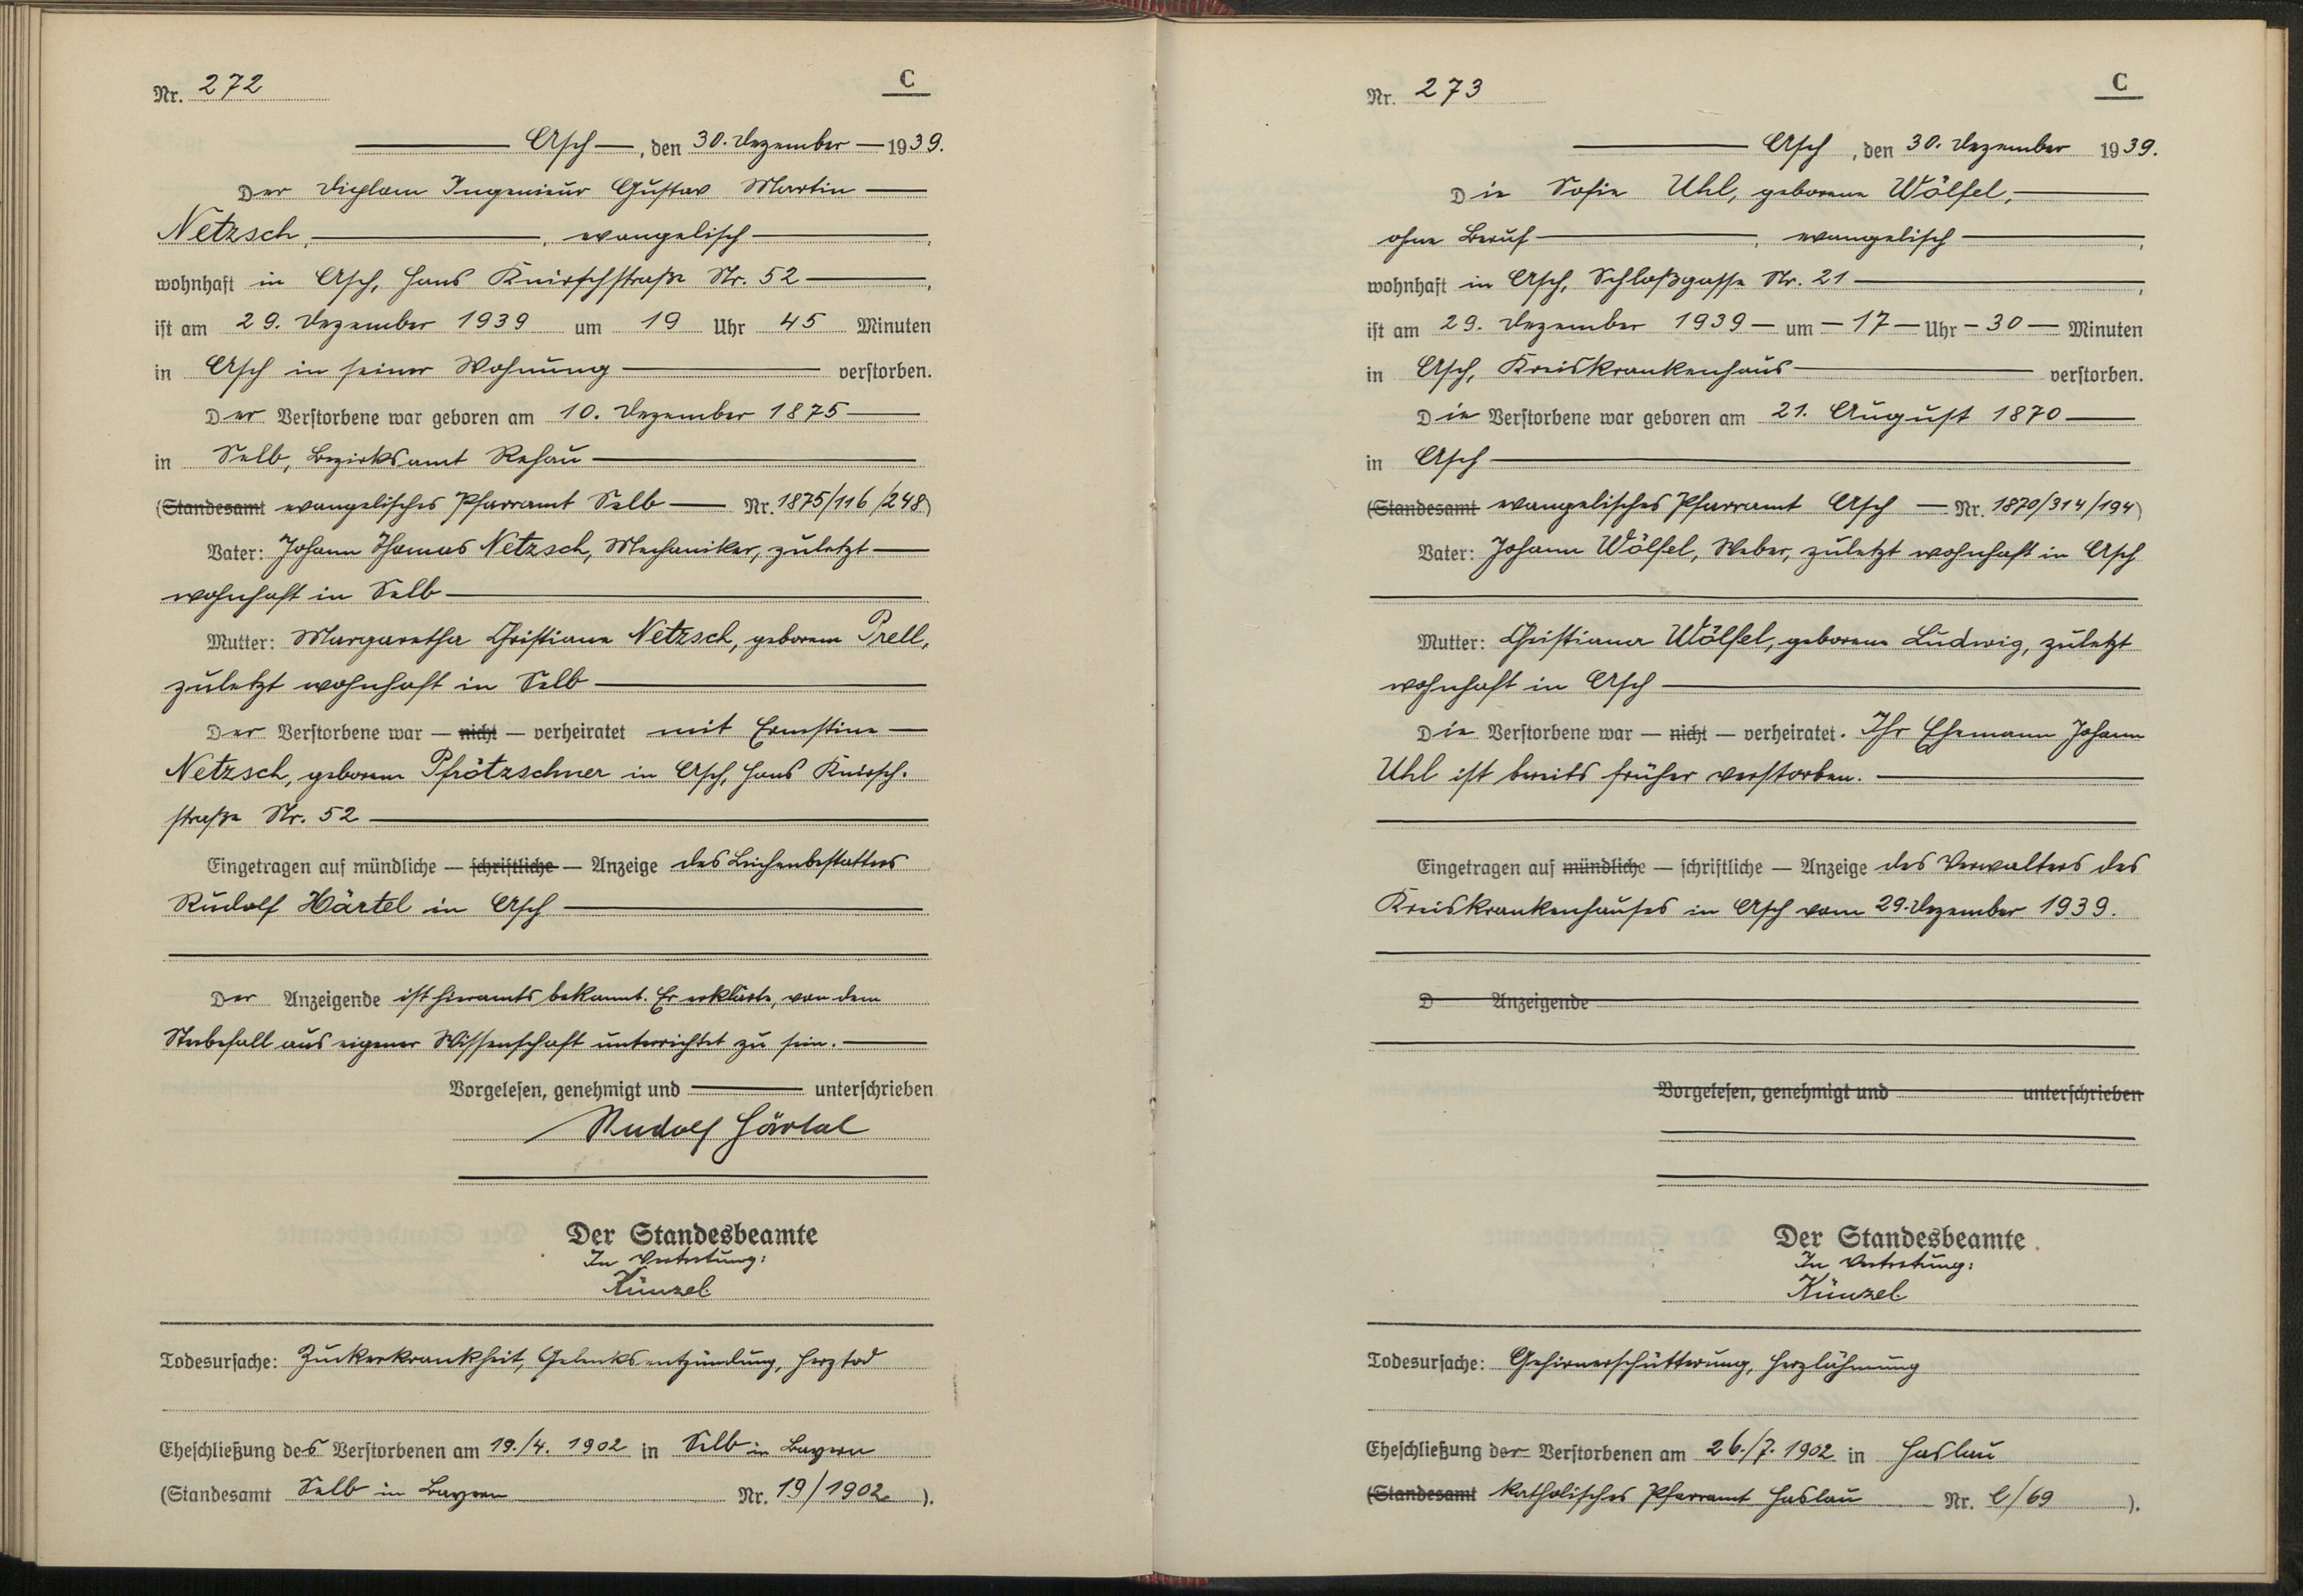 Nr. 272
C
Asch, den 30. Dezember 1939.
Der Diplom Ingenieur Gustav Martin
Netzsch, , evangelisch ,
wohnhaft in Asch, Hans Knirschstraße Nr. 52 ,
ist am 29. Dezember 1939 um 19 Uhr 45 Minuten
in Asch in seiner Wohnung verstorben.
Der Verstorbene war geboren am 10. Dezember 1875
in Selb, Bezirksamt Rehau
(Standesamt evangelisches Pfarramt Selb Nr. 1875/116/248)
Vater: Johann Thomas Netzsch, Mechaniker, zuletzt
wohnhaft in Selb
Mutter: Margaretha Christiane Netzsch, geborene Prell,
zuletzt wohnhaft in Selb
Der Verstorbene war — nicht — verheiratet mit Ernstine
Netzsch, geborene Pfrötzschner in Asch, Hans Knirsch-
straße Nr. 52
Eingetragen auf mündliche — schriftliche — Anzeige des Leichenbestatters
Rudolf Härtel in Asch
Der Anzeigende ist hieramts bekannt. Er erklärte, von dem
Sterbefall aus eigener Wissenschaft unterrichtet zu sein.
Vorgelesen, genehmigt und unterschrieben
Rudolf Härtel
Der Standesbeamte
In Vertretung:
Künzel
Todesursache: Zuckerkrankheit, Gelenksentzündung, Herztod
Eheschließung des Verstorbenen am 19./4. 1902 in Selb in Bayern
(Standesamt Selb in Bayern Nr. 19/1902 ).
Nr. 273
C
Asch, den 30. Dezember 1939.
Die Sofie Uhl, geborene Wölfel,
ohne Beruf , evangelisch ,
wohnhaft in Asch, Schloßgasse Nr. 21 ,
ist am 29. Dezember 1939 — um — 17 — Uhr — 30 — Minuten
in Asch, Kreiskrankenhaus verstorben.
Die Verstorbene war geboren am 21. August 1870
in Asch
(Standesamt evangelisches Pfarramt Asch — Nr. 1870/314/194)
Vater: Johann Wölfel, Weber, zuletzt wohnhaft in Asch
Mutter: Christiana Wölfel, geborene Ludwig, zuletzt
wohnhaft in Asch
Die Verstorbene war — nicht — verheiratet. Ihr Ehemann Johann
Uhl ist bereits früher verstorben.
Eingetragen auf mündliche — schriftliche — Anzeige des Verwalters des
Kreiskrankenhauses in Asch vom 29. Dezember 1939.
D Anzeigende
Vorgelesen, genehmigt und unterschrieben
Der Standesbeamte
In Vertretung:
Künzel
Todesursache: Gehirnerschütterung, Herzlähmung
Eheschließung der Verstorbenen am 26./7. 1902 in Haslau
(Standesamt katholisches Pfarramt Haslau Nr. /69 ).